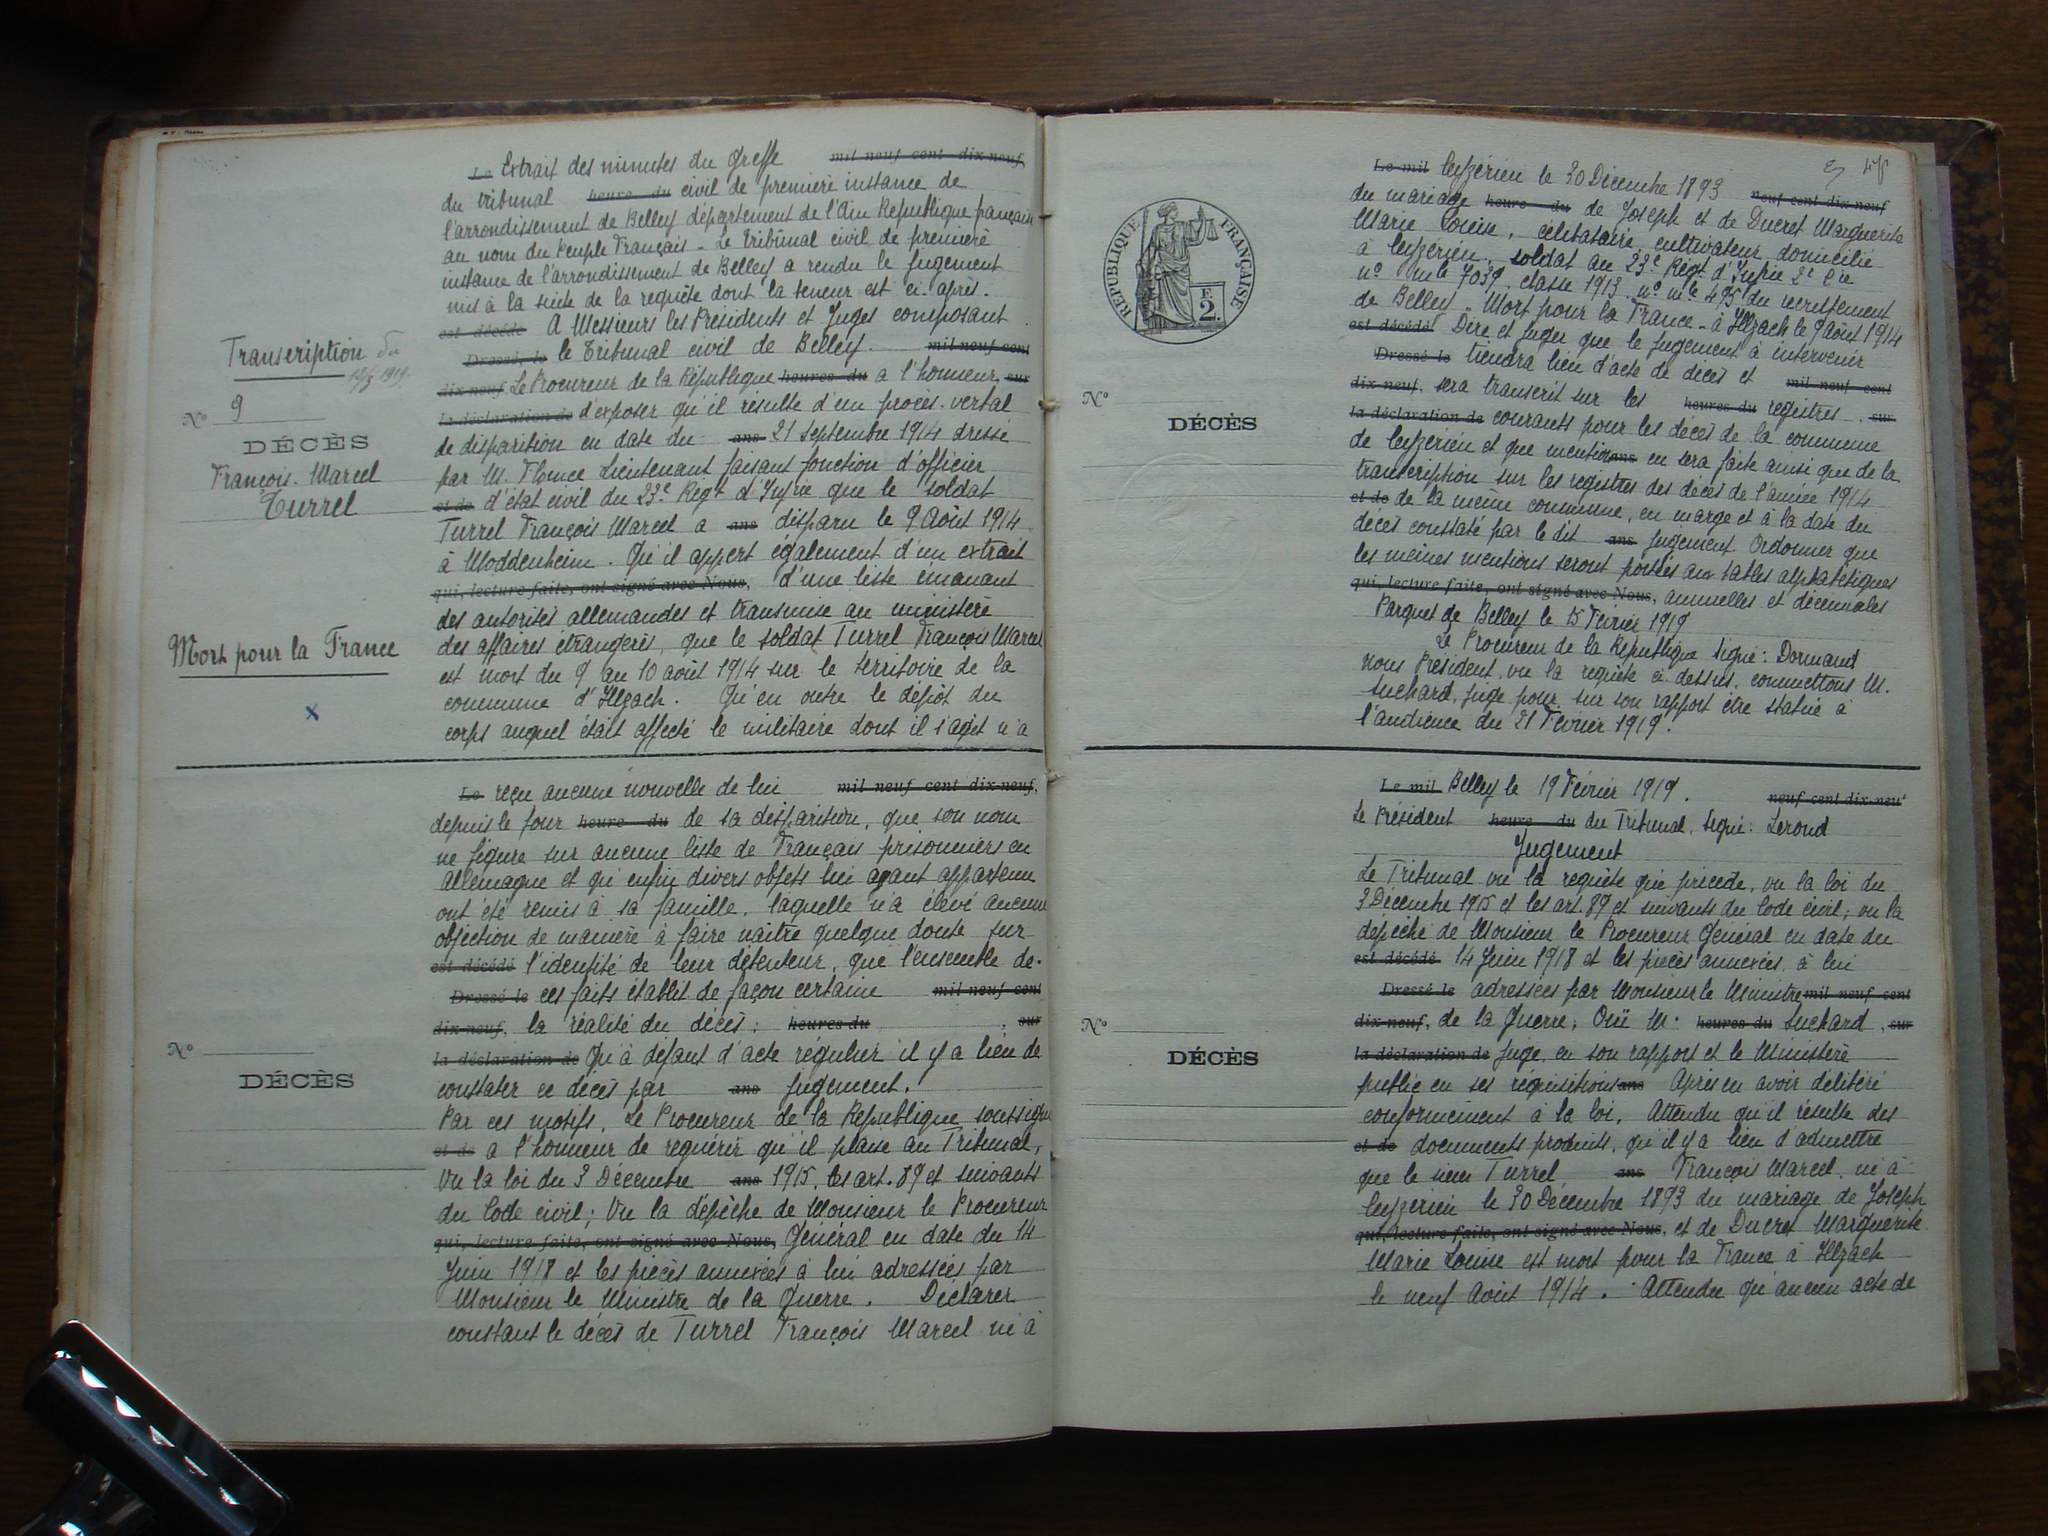 Le Extrait des minutes du Greffe mil neuf cent dix-neuf,
du tribunal heure du civil de première instance de
l'arrondissement de Belley département de l'Ain République française
au nom du Peuple Français - Le Tribunal civil de première
instance de l'arrondissement de Belley a rendu le jugement
mis à la suite de la requête dont la teneur est ci-après.
est décédé A Messieurs les Présidents et Juges composant
Dressé, le le Tribunal civil de Belley. mil neuf cent
dix-neuf, Le Procureur de la République heures du a l'honneur, sur
la déclaration de d'exposer qu'il résulte d'un procès-verbal
de disparition en date du ans 21 Septembre 1914 dressé
par M. Lieutenant faisant fonction d'officier
et de d'état civil du 23e Régt d'Infrie que le soldat
Turrel François Marcel a ans disparu le 9 Août 1914
à Moddenheim. Qu'il appert également d'un extrait
qui, lecture faite, ont signé avec Nous, d'une liste émanant
des autorités allemandes et transmise au ministère
des affaires étrangères, que le soldat Turrel François Marcel
est mort du 9 au 10 août 1914 sur le territoire de la
commune d'Illzach. Qu'en outre le dépôt du
corps auquel était affecté le militaire dont il s'agit n'a
Transcription du
12/3 1919.
No 9
DÉCÈS
François-Marcel
Turrel
Mort pour la France
x
Le reçu aucune nouvelle de lui mil neuf cent dix-neuf,
depuis le jour heure du de sa disparition, que son nom
ne figure sur aucune liste de Français prisonniers en
Allemagne et qu'enfin divers objets lui ayant appartenu
ont été remis à sa famille, laquelle n'a élevé aucune
objection de manière à faire naître quelque doute sur
est décédé l'identité de leur détenteur, que l'ensemble de
Dressé le ces faits établit de façon certaine mil neuf cent
dix-neuf, la réalité du décès; heures du , sur
la déclaration de Qu'à défaut d'acte régulier il y a lieu de
constater ce décès par ans jugement.
Par ces motifs, Le Procureur de la République soussigné
et de a l'honneur de requérir qu'il plaise au Tribunal,
Vu la loi du 3 Décembre ans 1915, les art. 89 et suivants
du Code civil; Vu la dépêche de Monsieur le Procureur
qui, lecture faite, ont signé avec Nous, Général en date du 14
Juin 1918 et les pièces annexées à lui adressées par
Monsieur le Ministre de la Guerre. Déclarer
constant le décès de Turrel François Marcel né à
No
DÉCÈS
RÉPUBLIQUE FRANÇAISE
F
2.
Le mil Ceyzérieu le 30 Décembre 1893 neuf cent dix-neuf
du mariage heure du de Joseph et de Ducret Marguerite
Marie Louise, célibataire, cultivateur domicilié
à Ceyzérieu, soldat au 23e Régt d'Infrie 2e Cie
no mle 7039, classe 1913 no mle 495 du recrutement
de Belley - Mort pour la France - à Illzach le 9 Août 1914
est décédé Dire et Juger que le jugement à intervenir
Dressé le tiendra lieu d'acte de décès et mil neuf cent
dix-neuf, sera transcrit sur les heures du registres , sur
la déclaration de courants pour les décès de la commune
de Ceyzérieu et que mention ans en sera faite ainsi que de la
transcription sur les registres des décès de l'année 1914
et de de la même commune, en marge et à la date du
décès constaté par le dit ans jugement. Ordonner que
les mêmes mentions seront portées aux tables alphabétiques
qui, lecture faite, ont signé avec Nous, annuelles et décennales
Parquet de Belley le 15 Février 1919
Le Procureur de la République Signé: Dormand
Nous Président, vu la requête ci-dessus, commettons M.
Suchard, juge pour, sur son rapport être statué à
l'audience du 21 Février 1919.
No
DÉCÈS
Le mil Belley le 19 Février 1919. neuf cent dix-neuf
Le Président heure du du Tribunal, Signé: Leroud
Jugement
Le Tribunal vu la requête qui précède, vu la loi du
3 Décembre 1915 et les art. 89 et suivants du Code civil; vu la
dépêche de Monsieur le Procureur Général en date du
est décédé 14 Juin 1918 et les pièces annexées à lui
Dressé le adressées par Monsieur le Ministre mil neuf cent
dix-neuf, de la Guerre; Ouï M. heures du Suchard , sur
la déclaration de juge, en son rapport et le Ministère
public en ses réquisitions ans Après en avoir délibéré
conformément à la loi, Attendu qu'il résulte des
et de documents produits, qu'il y a lieu d'admettre
que le sieur Turrel ans François Marcel, né à
Ceyzérieu le 30 Décembre 1893 du mariage de Joseph
qui, lecture faite, ont signé avec Nous, et de Ducret Marguerite
Marie Louise est mort pour la France à Illzach
le neuf Août 1914. Attendu qu'aucun acte de
No
DÉCÈS